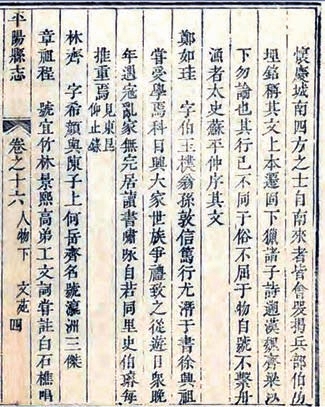 懷慶城南四方之士自南來者皆會愛揭兵部伯防
埋銘稱其文上本遷固下獵諸子詩過漢魏齊梁以
下勿論也其行己不同于俗不屈于物自號不繫舟
漁者太史蘇平仲序其文
鄭如珪 字伯玉樸翁孫敦信篤行尤潛于書徐興祖
嘗受學焉科目興大家世族爭禮致之從遊日眾晚
年遇寇亂家無完居讀書嘯咏自若同里史伯璿每
推重焉 見東昆仰止錄
林齊 字希顏與陳子上何岳齊名號瀛洲三傑
章祖程 號宜竹林景熙高弟工文詞嘗註白石樵唱
平陽縣志 卷之十六 人物下 文苑 四